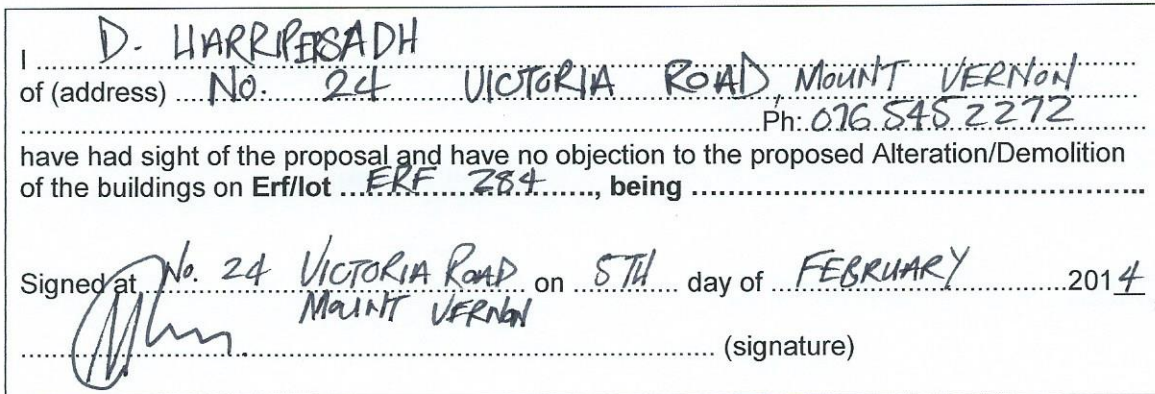 I D. HARRIPERSADH
of (address) No. 24 VICTORIA ROAD, MOUNT VERNON
Ph: 076 545 2272
have had sight of the proposal and have no objection to the proposed Alteration/Demolition
of the buildings on Erf/lot ERF 284, being
Signed at No. 24 VICTORIA ROAD on 5TH day of FEBRUARY 2014
MOUNT VERNON
(signature)